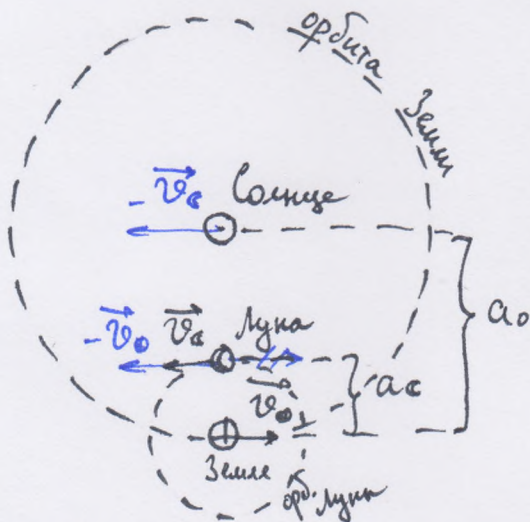 орбита
Земли
-v⃗☾
Солнце
-v⃗₀
v⃗☾
Луна
a₀
a☾
v⃗₀
Земле
орб. Луны